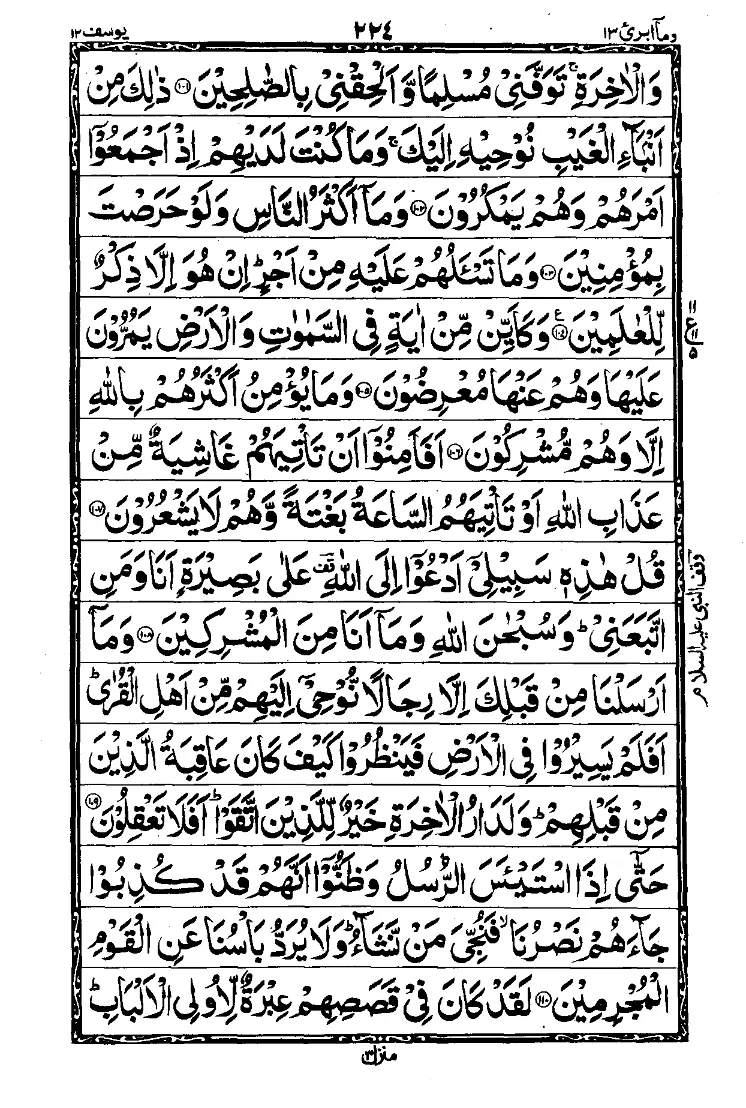 وما ابرئ ١٣
٢٢٤
يوسف ١٢
وَالْاٰخِرَةِ ۚ تَوَفَّنِىْ مُسْلِمًا وَّ اَلْحِقْنِىْ بِالصّٰلِحِيْنَ ﴿۱۰۱﴾ ذٰلِكَ مِنْ
اَنْۢبَآءِ الْغَيْبِ نُوْحِيْهِ اِلَيْكَ ۚ وَمَا كُنْتَ لَدَيْهِمْ اِذْ اَجْمَعُوْۤا
اَمْرَهُمْ وَهُمْ يَمْكُرُوْنَ ﴿۱۰۲﴾ وَمَاۤ اَكْثَرُ النَّاسِ وَلَوْ حَرَصْتَ
بِمُؤْمِنِيْنَ ﴿۱۰۳﴾ وَمَا تَسْـَٔلُهُمْ عَلَيْهِ مِنْ اَجْرٍ ؕ اِنْ هُوَ اِلَّا ذِكْرٌ
لِّلْعٰلَمِيْنَ ﴿۱۰٤﴾ ع وَكَاَيِّنْ مِّنْ اٰيَةٍ فِى السَّمٰوٰتِ وَالْاَرْضِ يَمُرُّوْنَ
١١
ع
١١
٥
عَلَيْهَا وَهُمْ عَنْهَا مُعْرِضُوْنَ ﴿۱۰۵﴾ وَمَا يُؤْمِنُ اَكْثَرُهُمْ بِاللّٰهِ
اِلَّا وَهُمْ مُّشْرِكُوْنَ ﴿۱۰۶﴾ اَفَاَمِنُوْۤا اَنْ تَاْتِيَهُمْ غَاشِيَةٌ مِّنْ
عَذَابِ اللّٰهِ اَوْ تَاْتِيَهُمُ السَّاعَةُ بَغْتَةً وَّهُمْ لَا يَشْعُرُوْنَ ﴿۱۰۷﴾
قُلْ هٰذِهٖ سَبِيْلِىْۤ اَدْعُوْۤا اِلَى اللّٰهِ ؔقف عَلٰى بَصِيْرَةٍ اَنَا وَمَنِ
وقف النبى عليه السلام
اتَّبَعَنِىْ ؕ وَسُبْحٰنَ اللّٰهِ وَمَاۤ اَنَا مِنَ الْمُشْرِكِيْنَ ﴿۱۰۸﴾ وَمَاۤ
اَرْسَلْنَا مِنْ قَبْلِكَ اِلَّا رِجَالًا نُّوْحِىْۤ اِلَيْهِمْ مِّنْ اَهْلِ الْقُرٰى ؕ
اَفَلَمْ يَسِيْرُوْا فِى الْاَرْضِ فَيَنْظُرُوْا كَيْفَ كَانَ عَاقِبَةُ الَّذِيْنَ
مِنْ قَبْلِهِمْ ؕ وَلَدَارُ الْاٰخِرَةِ خَيْرٌ لِّلَّذِيْنَ اتَّقَوْا ؕ اَفَلَا تَعْقِلُوْنَ ﴿۱۰۹﴾
حَتّٰٓى اِذَا اسْتَيْـَٔسَ الرُّسُلُ وَظَنُّوْۤا اَنَّهُمْ قَدْ كُذِبُوْا
جَآءَهُمْ نَصْرُنَا ۙ فَنُجِّىَ مَنْ نَّشَآءُ ؕ وَلَا يُرَدُّ بَاْسُنَا عَنِ الْقَوْمِ
الْمُجْرِمِيْنَ ﴿۱۱۰﴾ لَقَدْ كَانَ فِىْ قَصَصِهِمْ عِبْرَةٌ لِّاُولِى الْاَلْبَابِ ؕ
منزل ٣